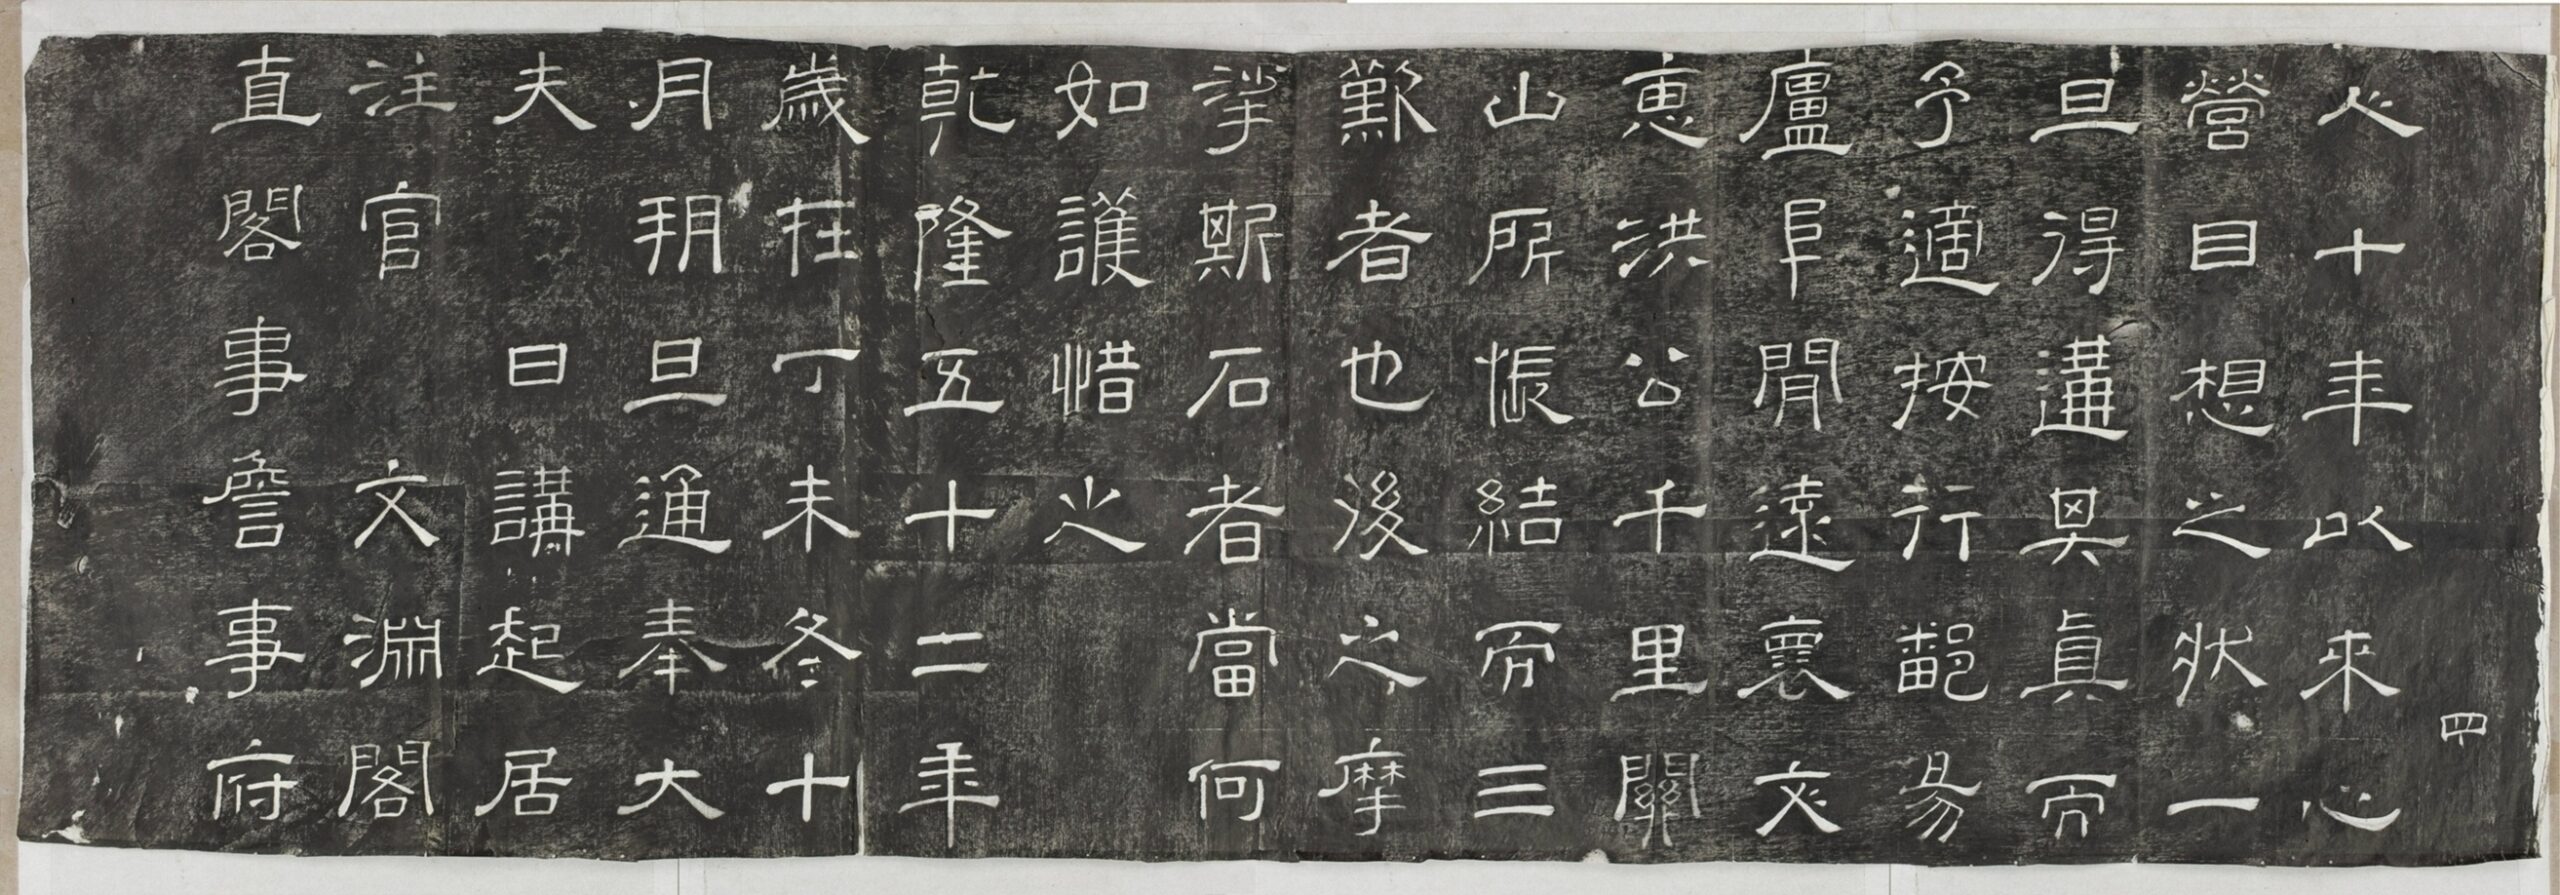 四
六十年以來心
營目想之狀一
旦得遘其眞而
予適按行鄱昜
廬阜閒遠褱文
惠洪公千里關
山所悵結而三
歎者也後之摩
挲斯石者當何
如護惜之
乾隆五十二年
歲在丁未冬十
月朔旦通奉大
夫日講起居
注官文淵閣
直閣事詹事府